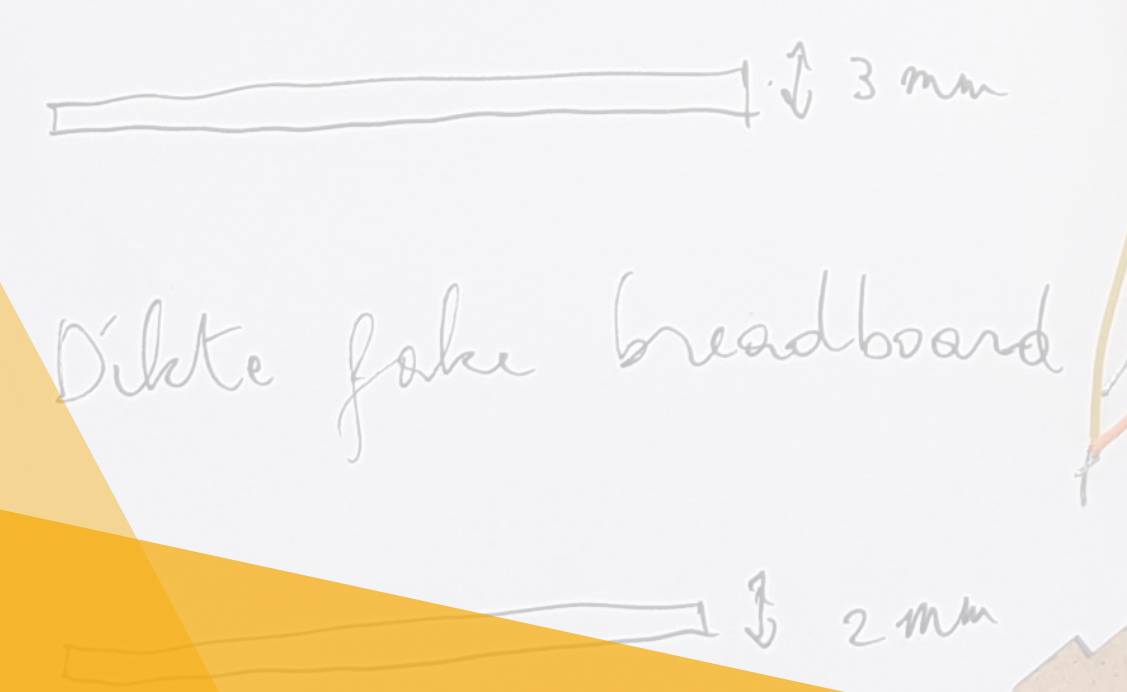 3 mm
Dikte fake breadboard
2 mm